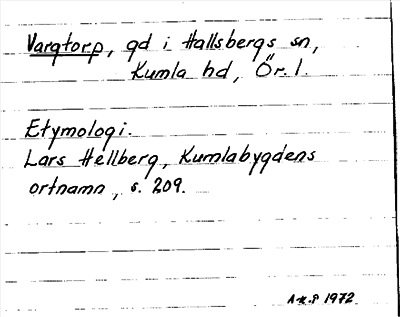 Vargtorp, gd i Hallsbergs sn,
Kumla hd, Ör. l.
Etymologi.
Lars Hellberg, Kumlabygdens
ortnamn, s. 209.
1972